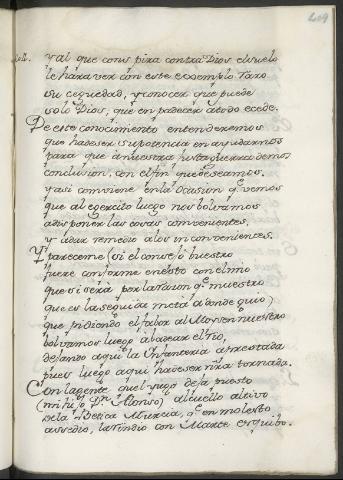 409
y al que conspira contra Dios el suelo
le hara ver con este exemplo raro
su ceguedad, y conocer que puede
solo Dios, que en padecer a todo ecede.
De este conocimiento entenderemos
que ha de ser su potencia en ayudarnos
para que a nuestra justa guerra demos
conclusion, con el fin que deseamos.
y asi conviene en la ocasion q̃ vemos
que al egercito luego nos bolvamos
a disponer las cosas convenientes,
y a dar remedio a los inconvenientes.
Y pareceme (si el consejo vuestro
fuere conforme en esto con el mio
que si será por la raçon q̃ muestro
que es la seguida meta a donde guio)
que pidiendo el fabor al Moysen nuestro
bolvamos luego a badear el rio,
dejando aqui la Infanteria aprestada
pues luego aqui ha de ser nr̃a tornada.
Con la gente que el yugo deja puesto
(mi hijo Dn Alonso) al cuello altivo
de la Betica Murcia, q̃ en molesto
assedio, la rindio con Marte esquibo.